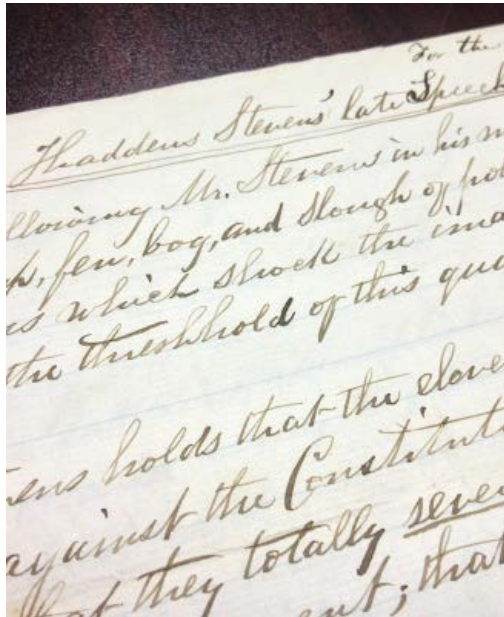 For the
Thaddeus Stevens' late Speech
llowing Mr. Stevens in his
fen, bog, and slough of pol
s which shock the
the threshhold of this que
ens holds that the slave
against the Constituti
hat they totally seve
ent; that